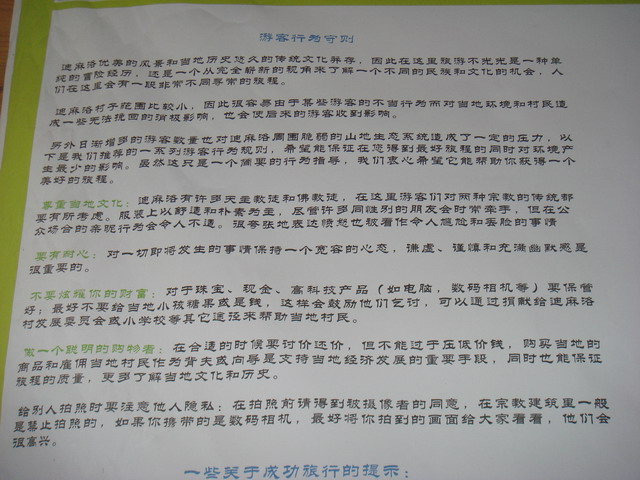 游客行为守则
迪麻洛优美的风景和当地历史悠久的传统文化并存，因此在这里旅游不光光是一种单
纯的冒险经历，还是一个从完全崭新的视角来了解一个不同的民族和文化的机会，人
们在这里会有一段非常不同寻常的旅程。
迪麻洛村子范围比较小，因此很容易由于某些游客的不当行为而对当地环境和村民造
成一些无法挽回的消极影响，也会使后来的游客收到影响。
另外日渐增多的游客数量也对迪麻洛周围脆弱的山地生态系统造成了一定的压力，以
下是我们推荐的一系列游客行为规则，希望能保证在您得到最好旅程的同时对环境产
生最少的影响。虽然这只是一个简要的行为指导，我们衷心希望它能帮助你获得一个
美好的旅程。
尊重当地文化：迪麻洛有许多天主教徒和佛教徒，在这里游客们对两种宗教的传统都
要有所考虑。服装上以舒适和朴素为主，尽管许多同性别的朋友会时常牵手，但在公
众场合的亲昵行为会令人不适。很夸张地表达愤怒也被看作令人尴尬和丢脸的事情
要有耐心：对一切即将发生的事情保持一个宽容的心态，谦虚、谨慎和充满幽默感是
很重要的。
不要炫耀你的财富：对于珠宝、现金、高科技产品（如电脑，数码相机等）要保管
好；最好不要给当地小孩糖果或是钱，这样会鼓励他们乞讨，可以通过捐献给迪麻洛
村发展委员会或小学校等其它途径来帮助当地村民。
做一个聪明的购物者：在合适的时候要讨价还价，但不能过于压低价钱，购买当地的
商品和雇佣当地村民作为背夫或向导是支持当地经济发展的重要手段，同时也能保证
旅程的质量，更多了解当地文化和历史。
给别人拍照时要注意他人隐私：在拍照前请得到被摄像者的同意，在宗教建筑里一般
是禁止拍照的，如果你携带的是数码相机，最好将你拍到的画面给大家看看，他们会
很高兴。
一些关于成功旅行的提示：